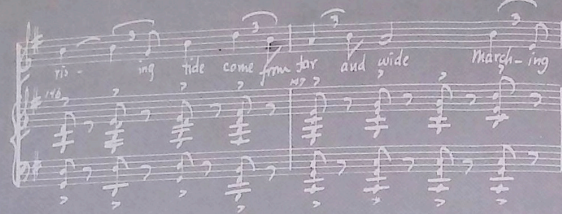 ris - ing tide come from far and wide March - ing